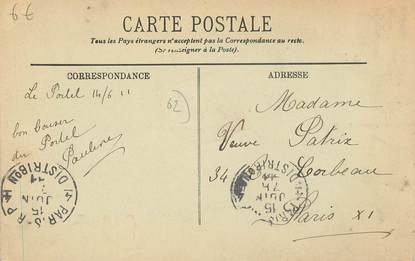 6€
CARTE POSTALE
Tous les Pays étrangers n'acceptent pas la Correspondance au recto.
(Se renseigner à la Poste).
CORRESPONDANCE
Le Portel 14/6 11
bon baiser
du Portel
Pauline
62
PARIS R.P.
DISTRIBUTION
15
JUIN
11
ADRESSE
Madame
Veuve Patrix
34 Corbeau
Paris XI
PARIS
DISTRIBUTION
15
JUIN